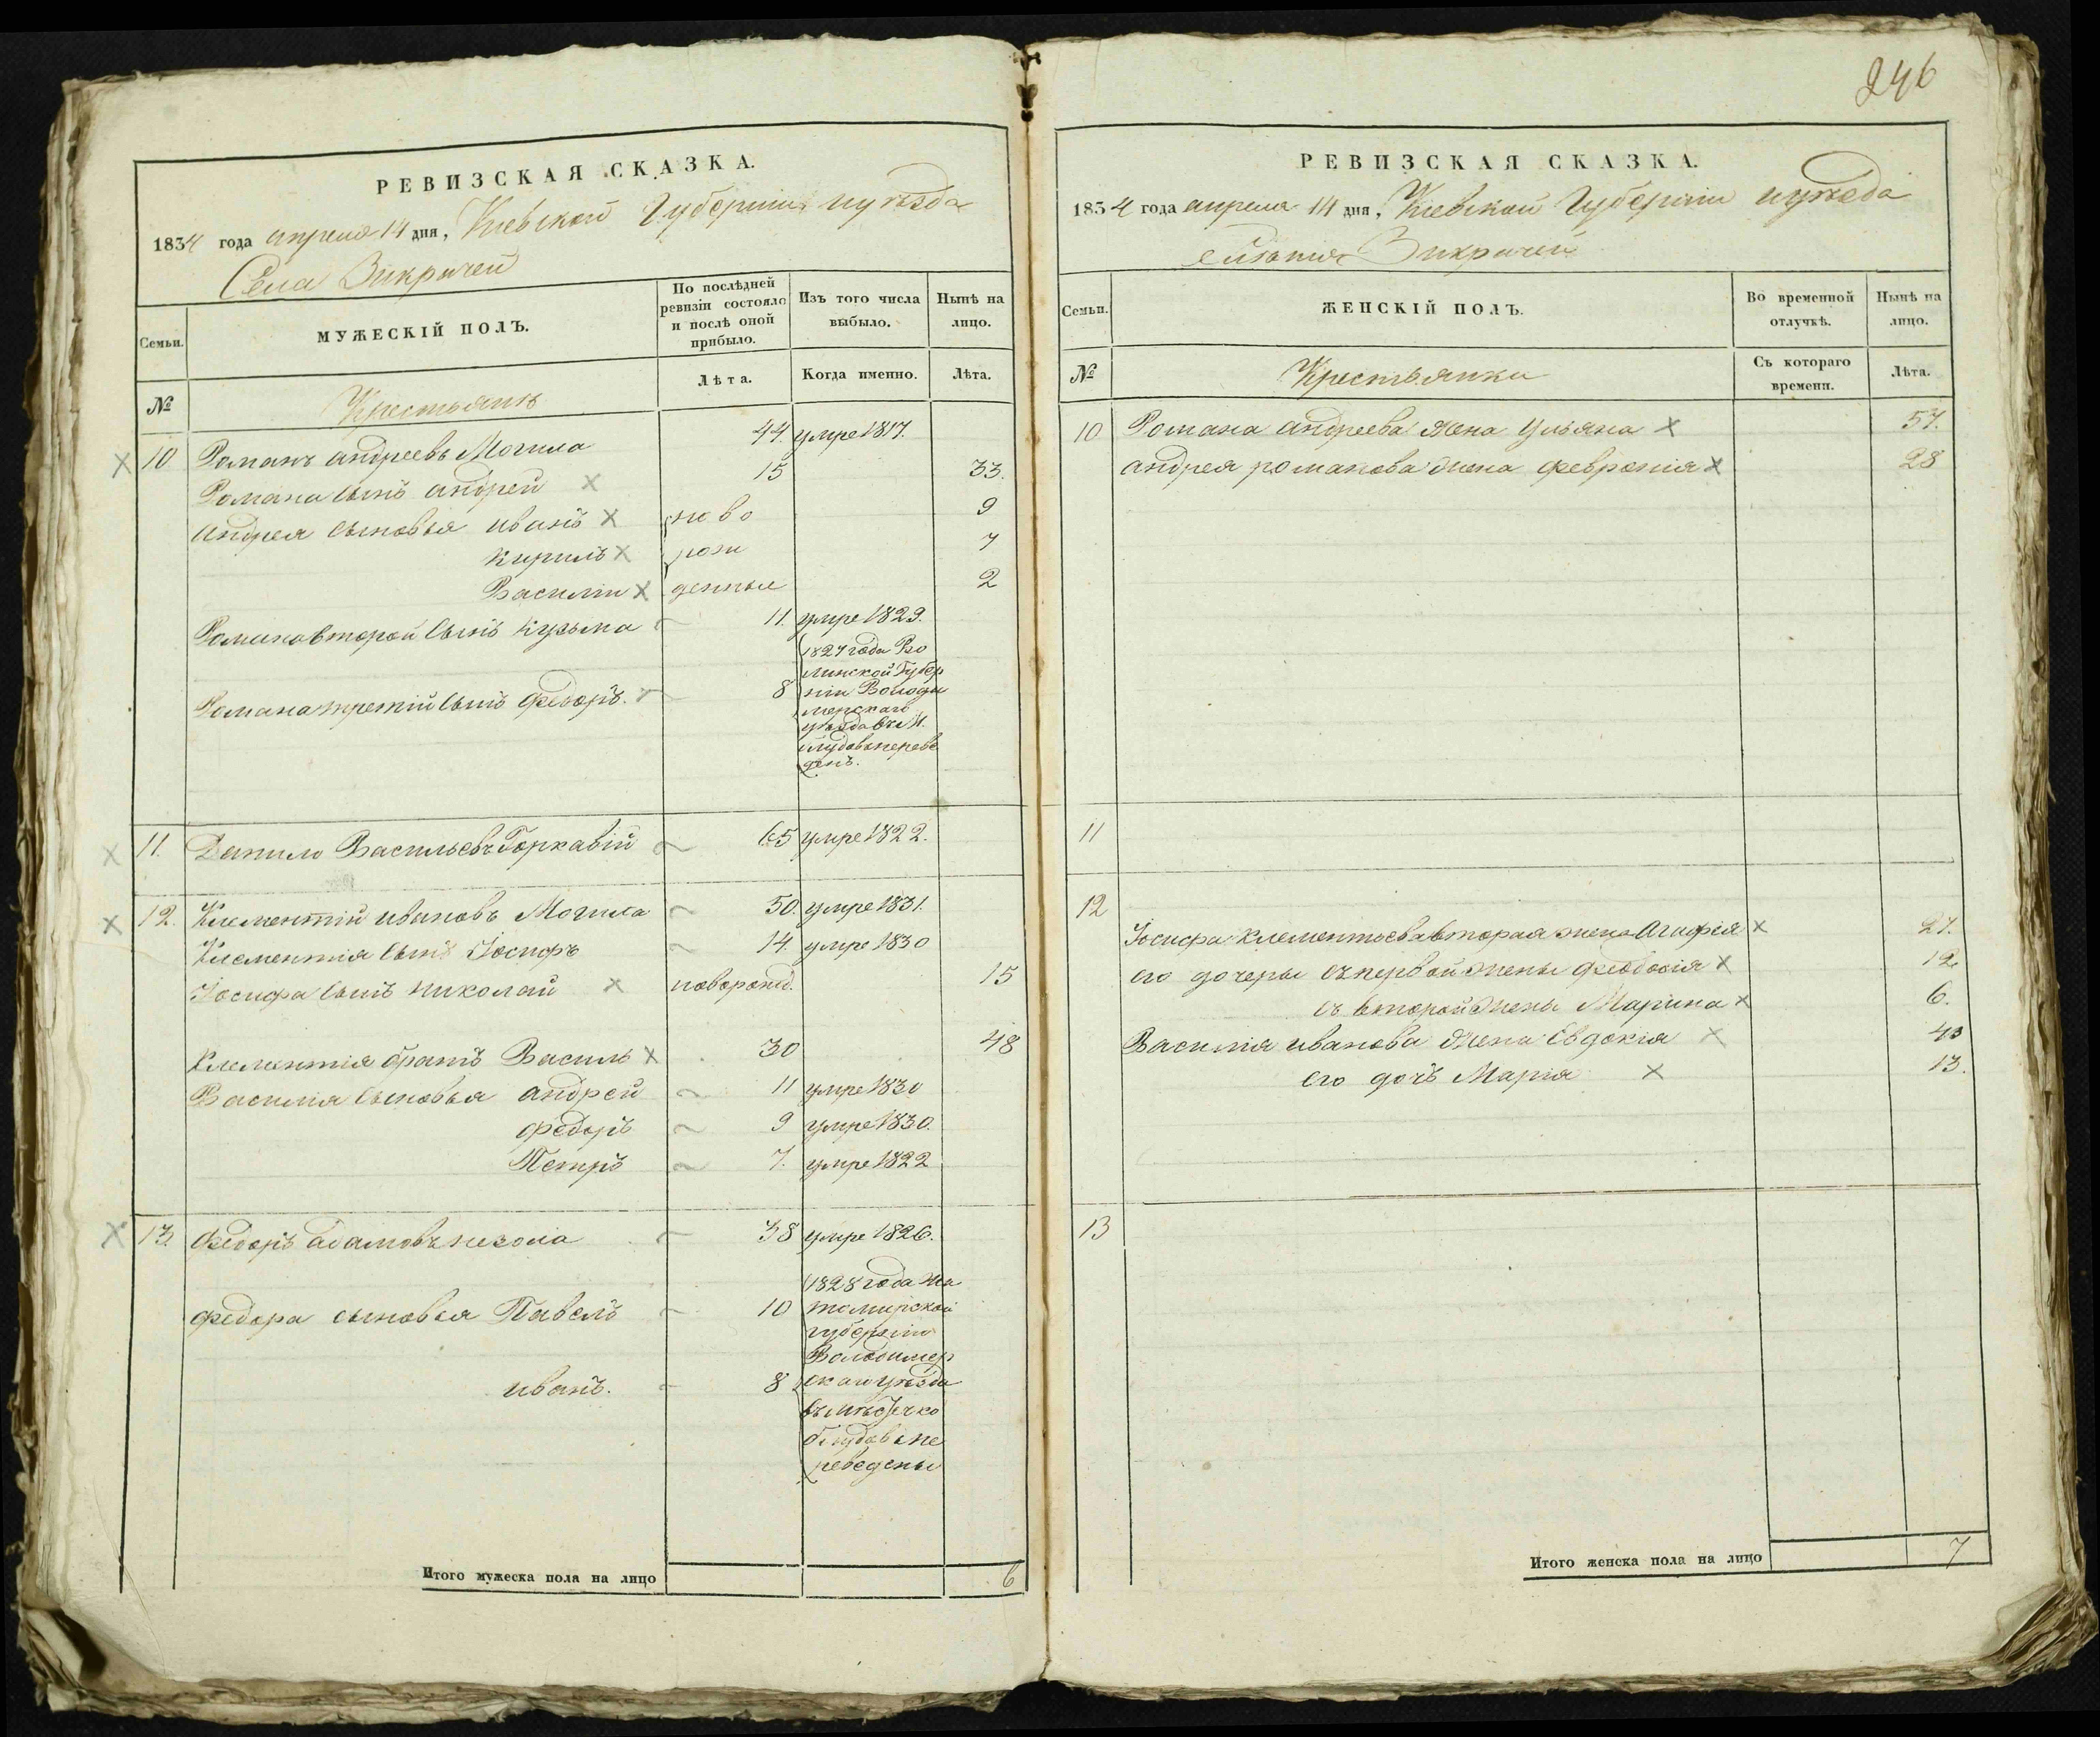 246
РЕВИЗСКАЯ СКАЗКА.
1834 года апреля 14 дня, Киевской Губерніи и уѣзда
Села Викричей
Семьи.
МУЖЕСКІЙ ПОЛЪ.
По послѣдней ревизіи состояло и послѣ оной прибыло.
Изъ того числа выбыло.
Нынѣ на лицо.
№
Крестьянъ
Лѣта.
Когда именно.
Лѣта.
10 Романъ андреевъ Могила 44. умре 1817.
Романа сынъ андрей 15 33.
андрея сыновья иванъ ново 9
кирилъ рож 7
Василій денные 2
Романа второй сынъ кузьма 11. умре 1829.
Романа третій сынъ федоръ. 8
1827 года Во
линской Губер
ніи Володи
мерскаго
уѣзда въ м.
блудовъ переве
денъ.
11. Данило Васильевъ Горкавій 65 умре 1822.
12. Клементій ивановъ Могила 50. умре 1831.
Клементія сынъ Іосифъ 14 умре 1830
Іосифа сынъ николай новорожд. 15
Клементія братъ Василь 30 48
Василія сыновья андрей 11 умре 1830
федоръ 9 умре 1830.
Петръ 7. умре 1822
13. Федоръ адамовъ 38 умре 1826.
федора сыновья Павелъ 10
иванъ. 8
1828 года жи
томирской
губерніи
Володимер
скаго уѣзда
въ мѣстечко
блудовъ пе
реведены
Итого мужеска пола на лицо 6
РЕВИЗСКАЯ СКАЗКА.
1834 года апреля 14 дня, Киевской Губерніи и уѣзда
Викричей
Семьи.
ЖЕНСКІЙ ПОЛЪ.
Во временной отлучкѣ.
Нынѣ на лицо.
№
Крестьянки
Съ котораго времени.
Лѣта.
10 Романа андреева жена Ульяна 57.
андрея романова жена февронія 28
11
12
Іосифа Клементьева вторая жена Агафія 27.
его дочеры съ первой жены феодосія 12
съ второй жены Марина 6.
Василія иванова жена Евдокія 43
его дочъ Марія 13.
13
Итого женска пола на лицо 7